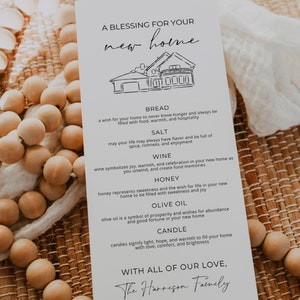 A BLESSING FOR YOUR
new home
BREAD
a wish for your home to never know hunger and always be
filled with food, warmth, and hospitality
SALT
may your life may always have flavor and be full of
spice, richness, and enjoyment
WINE
wine symbolizes joy, warmth, and celebration in your new home as
you unwind, and create fond memories
HONEY
honey represents sweetness and the wish for life in your new
home to be filled with sweetness
OLIVE OIL
olive oil is a symbol of prosperity and wishes for abundance
and good fortune in your new home
CANDLE
candles signify light, hope, and warmth to fill your home
with love, comfort, and brightness
WITH ALL OF OUR LOVE,
The Harrison Family